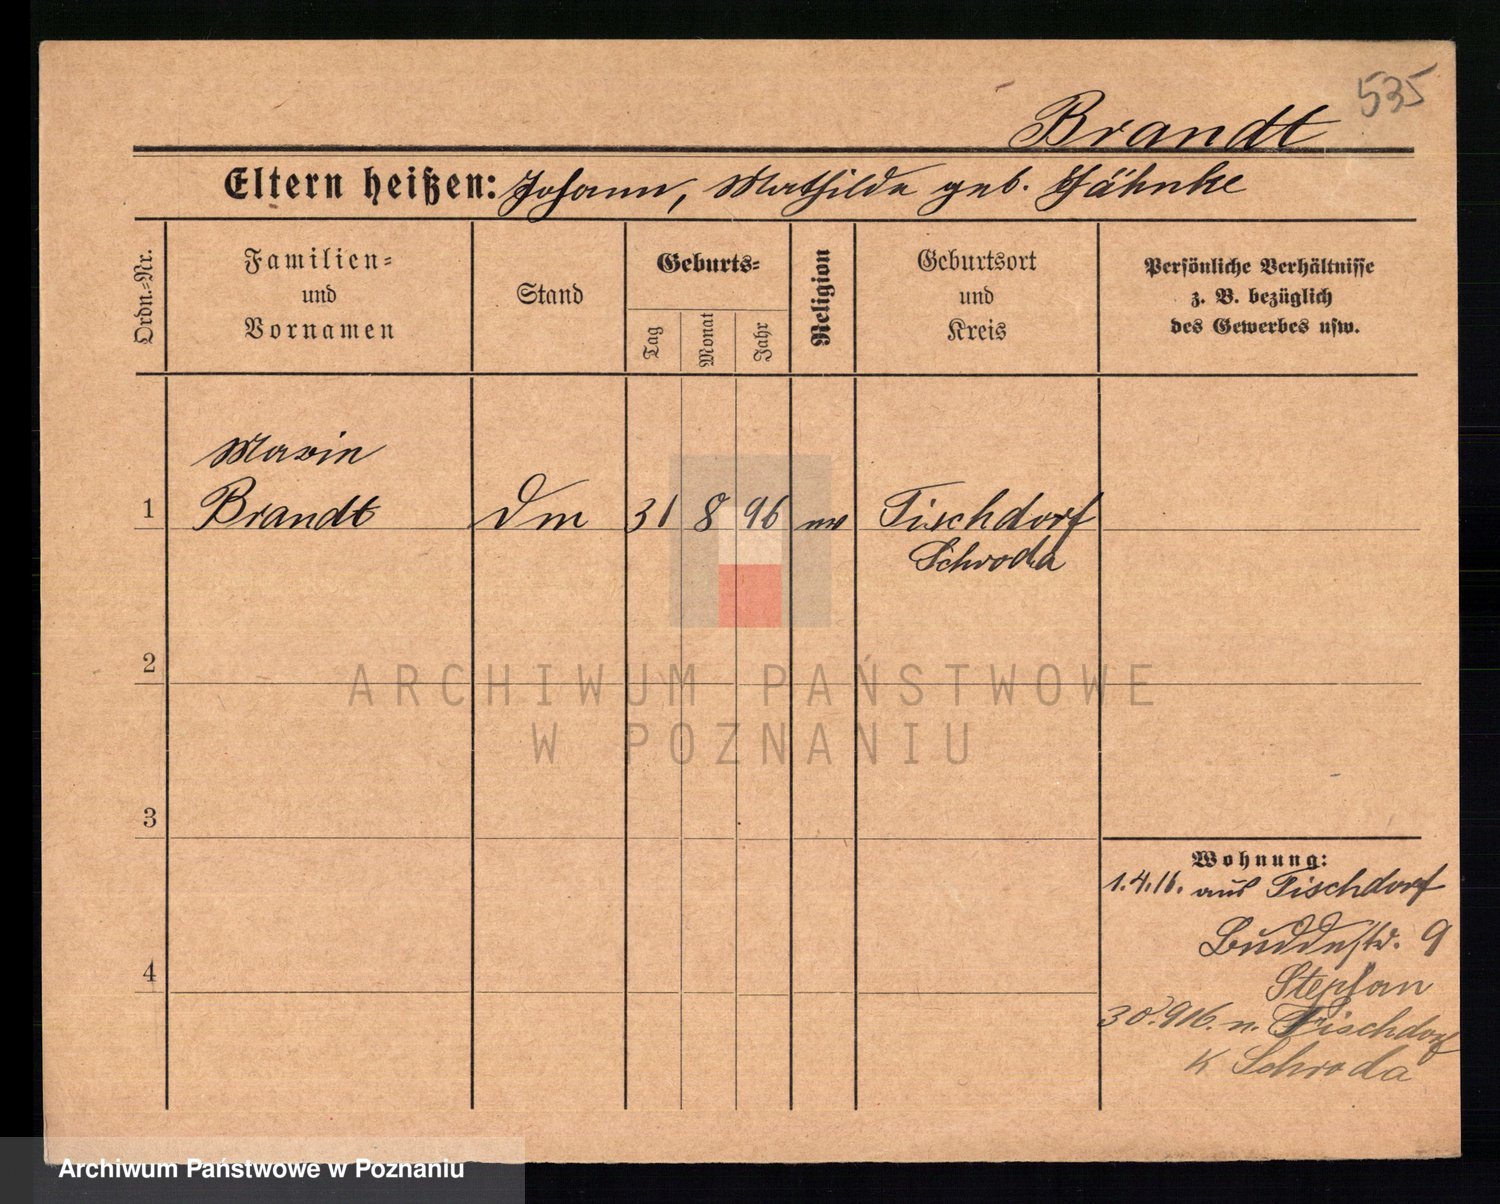 535
Brandt
Eltern heißen: Johann, Mathilde geb. Jähnke
Ordn.-Nr.
Familien-
und
Vornamen
Stand
Geburts-
Tag
Monat
Jahr
Religion
Geburtsort
und
Kreis
Persönliche Verhältnisse
z. B. bezüglich
des Gewerbes usw.
Marie
1 Brandt Dm 31 8 96 Tischdorf
Schroda
2
ARCHIWUM PAŃSTWOWE
W POZNANIU
3
Wohnung:
1.4.16. aus Tischdorf
Buddestr. 9
4
Stephan
30.9.16. n. Tischdorf
K Schroda
Archiwum Państwowe w Poznaniu